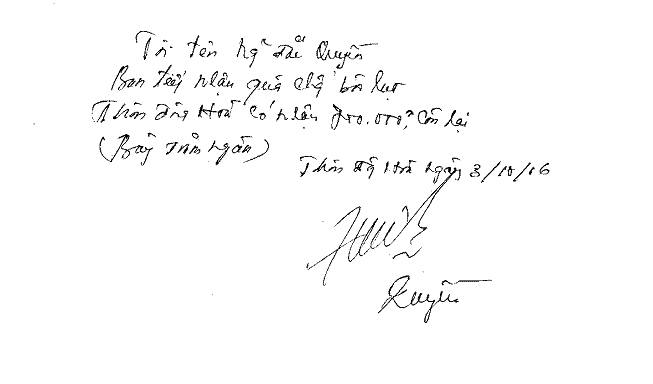 Tôi tên Quyền
Ban tiếp nhận quà
Thôn Đông Hoà có nhận 700.000đ còn lại
(Bảy trăm ngàn)
Thôn Đông Hoà ngày 3/10/16
Quyền